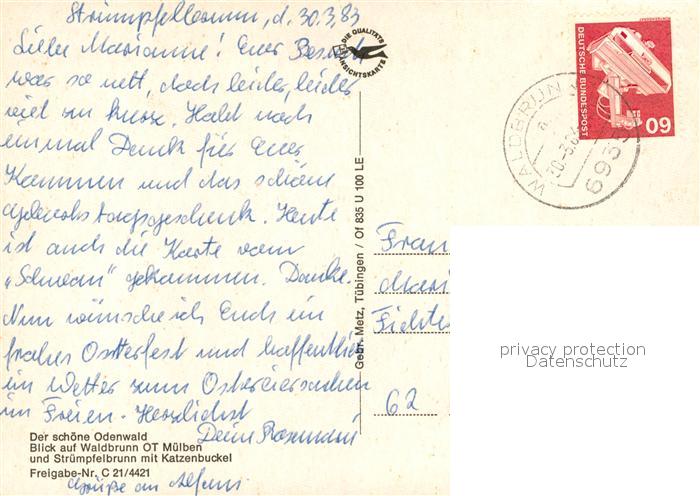 Strümpfelbrunn, d. 30.3.83
Liebe Marianne! Euer Besuch
war so nett, doch leider, leider
viel zu kurz. Habt noch
einmal Dank für Euer
Kommen und das schöne
Geburtstagsgeschenk. Heute
ist auch die Karte vom
„Schwan" gekommen. Danke.
Nun wünsche ich Euch ein
frohes Osterfest und hoffentlich
ein Wetter zum Ostereiersuchen
im Freien. Herzlichst
Deine
Grüße an
Der schöne Odenwald
Blick auf Waldbrunn OT Mülben
und Strümpfelbrunn mit Katzenbuckel
Freigabe-Nr. C 21/4421
DIE QUALITÄTS
ANSICHTSKARTE
Gebr. Metz, Tübingen / Of 835 U 100 LE
DEUTSCHE BUNDESPOST
60
WALDBRUNN
a
693
Frau
Mari
Fichte
62
privacy protection
Datenschutz